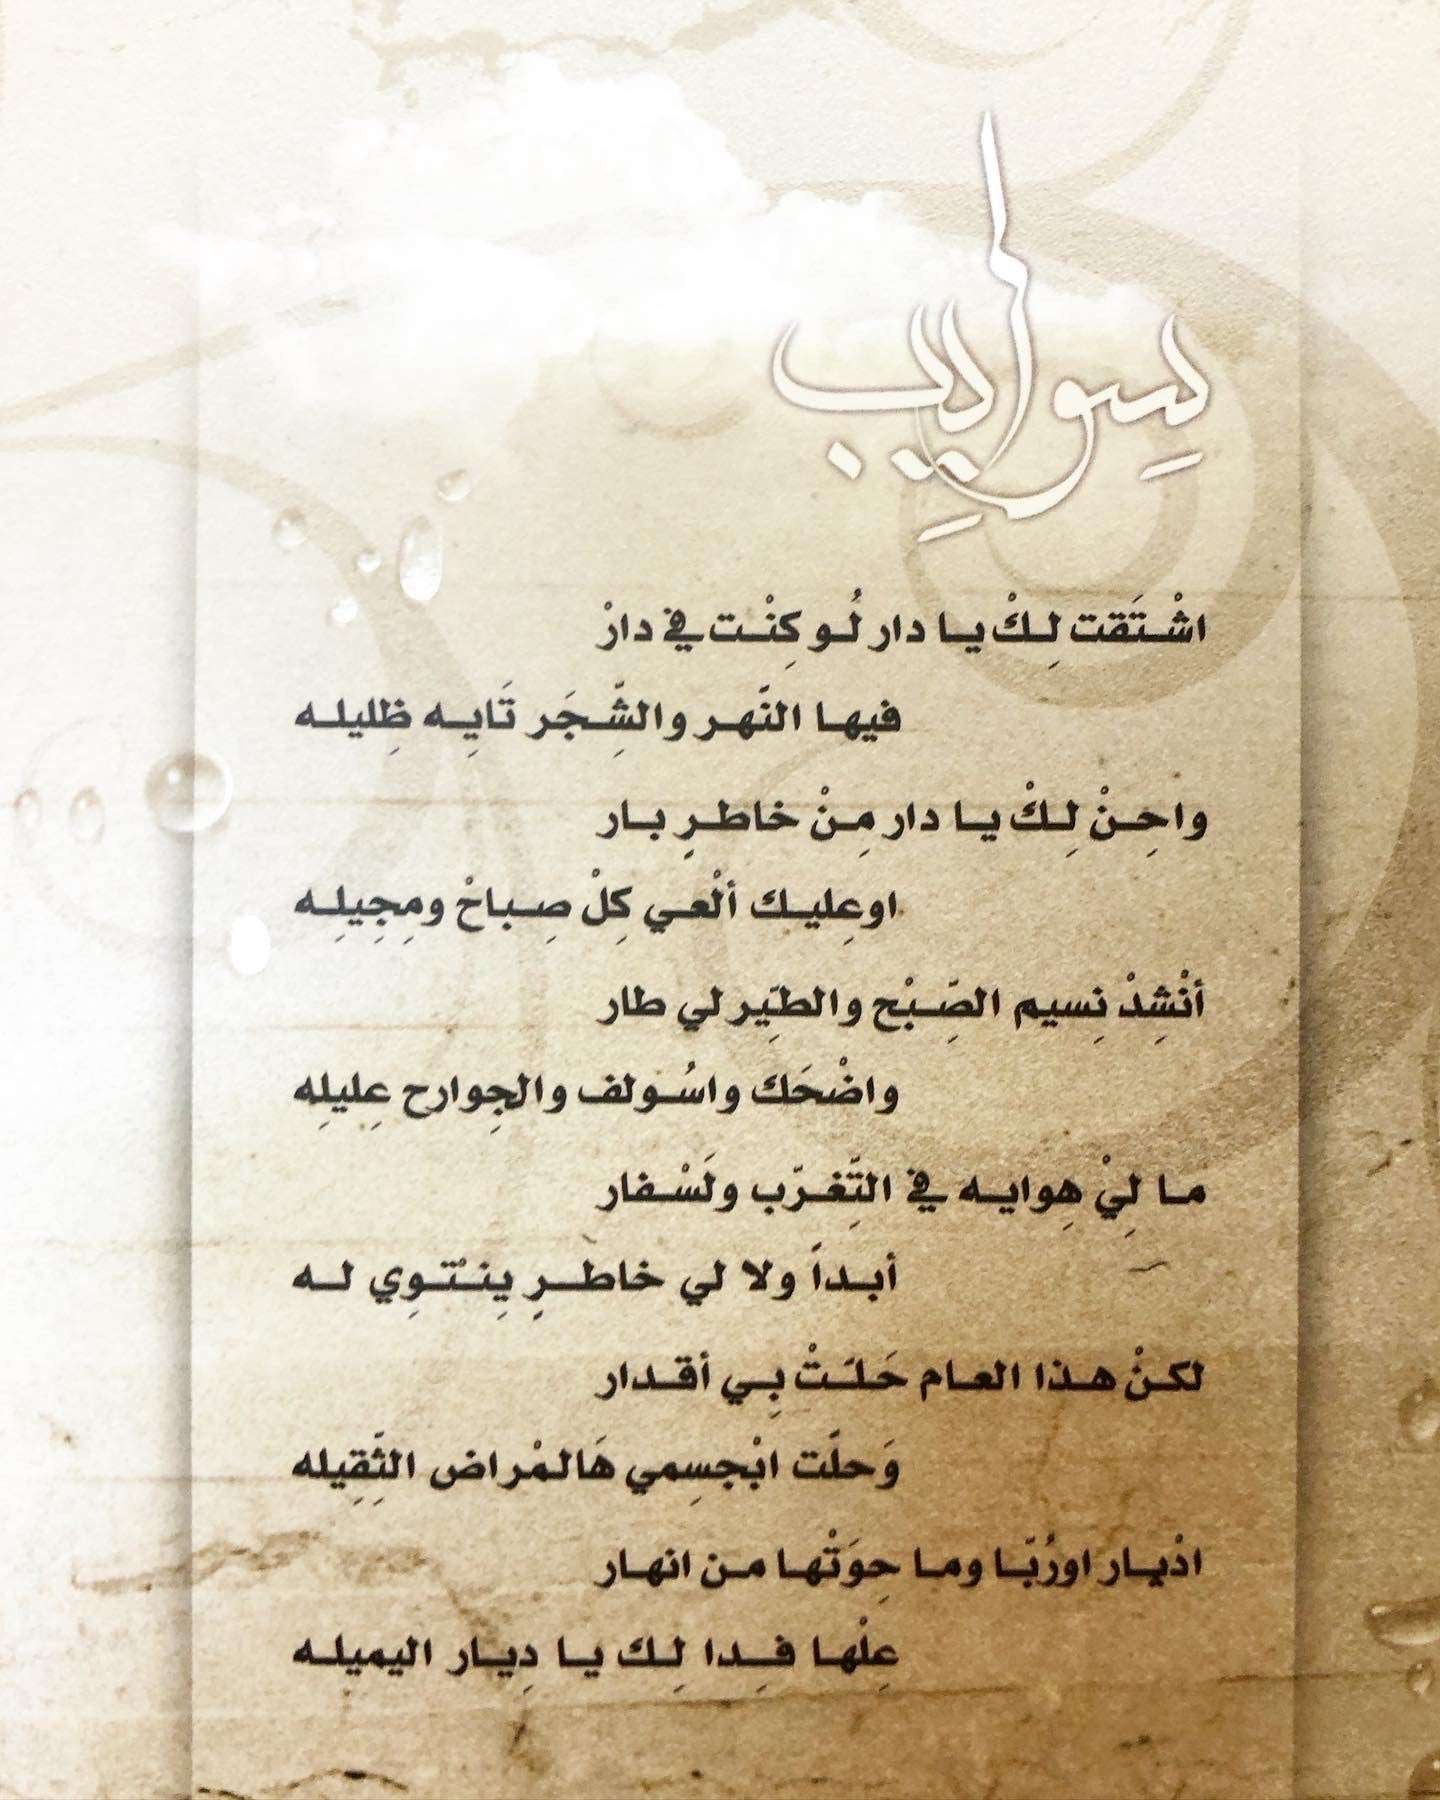 سواليب
اشْتَقت لِكْ يا دار لُو كِنْت في دارْ
فيها النَّهر والشِّجَر تَايِه ظِليله
واحِنْ لِكْ يا دار مِنْ خاطرٍ بار
اوعِليك ألْعي كِلْ صِباحْ ومِجِيلِه
أنْشِدْ نِسيم الصِّبْح والطيِّر لي طار
واضْحَك واسُولف والجِوارح عِليلِه
ما لِيْ هِوايه في التِّغرّب ولَسْفار
أبداً ولا لي خاطرٍ يِنْتوِي له
لكنْ هذا العام حَلّتْ بِي أقدار
وَحلّت ابْجسِمي هَالمْراض الثِّقِيله
ادْيار اورُبّا وما حِوَتْها من انهار
عِلْها فِدا لِك يا دِيار اليميله